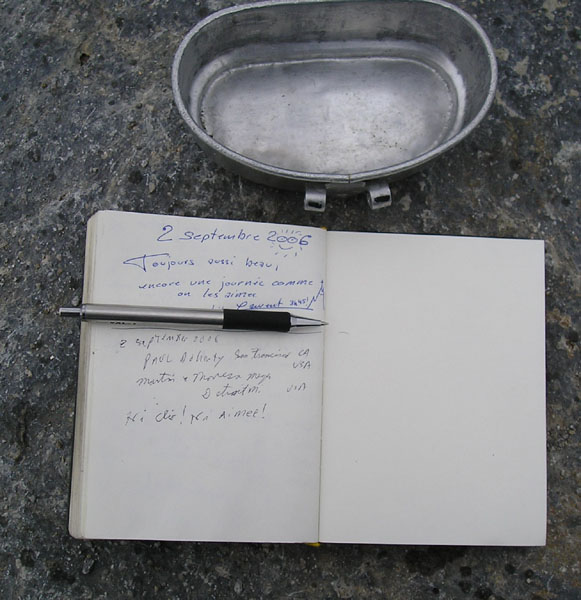 2 septembre 2006
Toujours aussi beau,
encore une journée comme
on les aimes
Laurent
2 september 2006
PAUL Doherty San Francisco CA
USA
Martin + Theresa
Detroit MI. USA
Hi Clio! Hi Aimee!